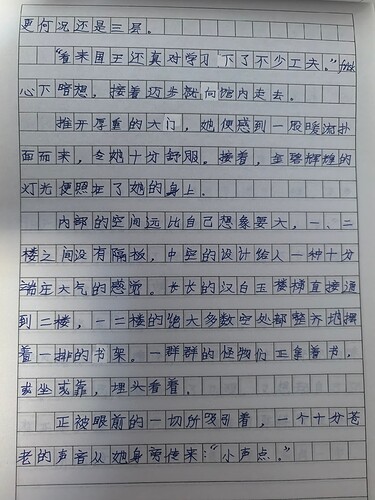 更何况还是三层。
“看来国王还真对学习下了不少工夫。”她
心下暗想，接着迈步就向馆内走去。
推开厚重的大门，她便感到一股暖流扑
面而来，令她十分舒服。接着，金碧辉煌的
灯光便照在了她的身上。
内部的空间远比自己想象要大，一、二
楼之间没有隔板，中空的设计给人一种十分
端庄大气的感觉。长长的汉白玉楼梯直接通
到二楼，一二楼的绝大多数空处都整齐地摆
着一排的书架。一群群的怪物们正拿着书，
或坐或靠，埋头看着。
正被眼前的一切所吸引着，一个十分苍
老的声音从她身旁传来：“小声点。”